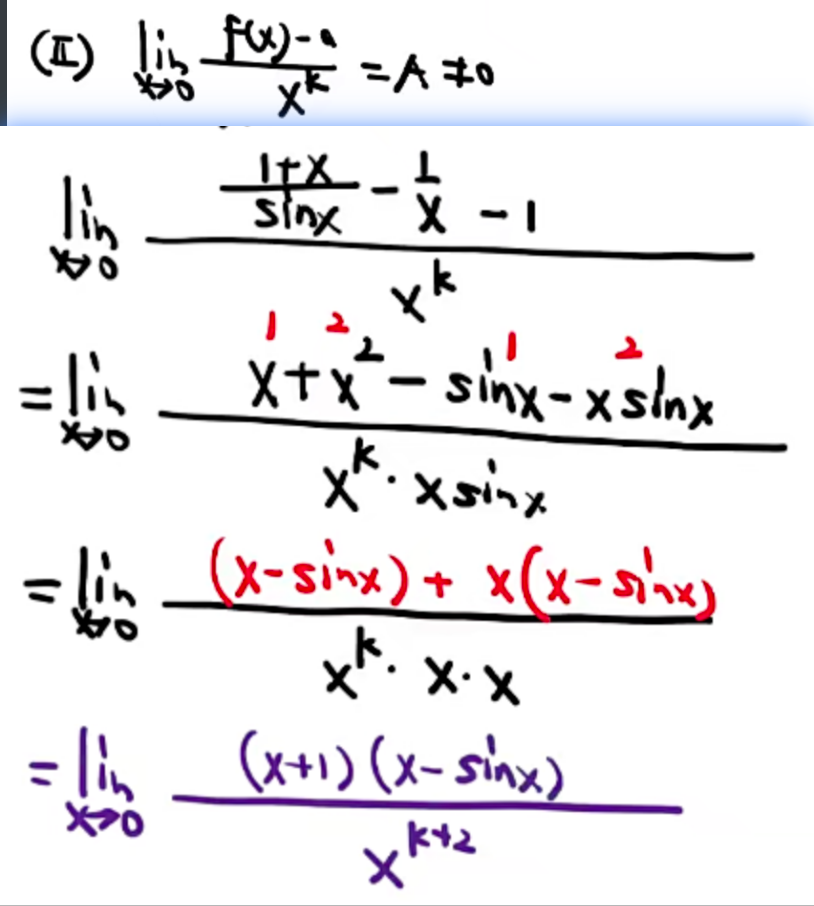 (II) lim x→0 (f(x)-a)/x^k = A ≠ 0
lim x→0 ((1+x)/sinx - 1/x - 1)/x^k
1 2 1 2
= lim x→0 (x+x^2-sinx-xsinx)/(x^k·xsinx)
= lim x→0 ((x-sinx)+x(x-sinx))/(x^k·x·x)
= lim x→0 ((x+1)(x-sinx))/x^(k+2)